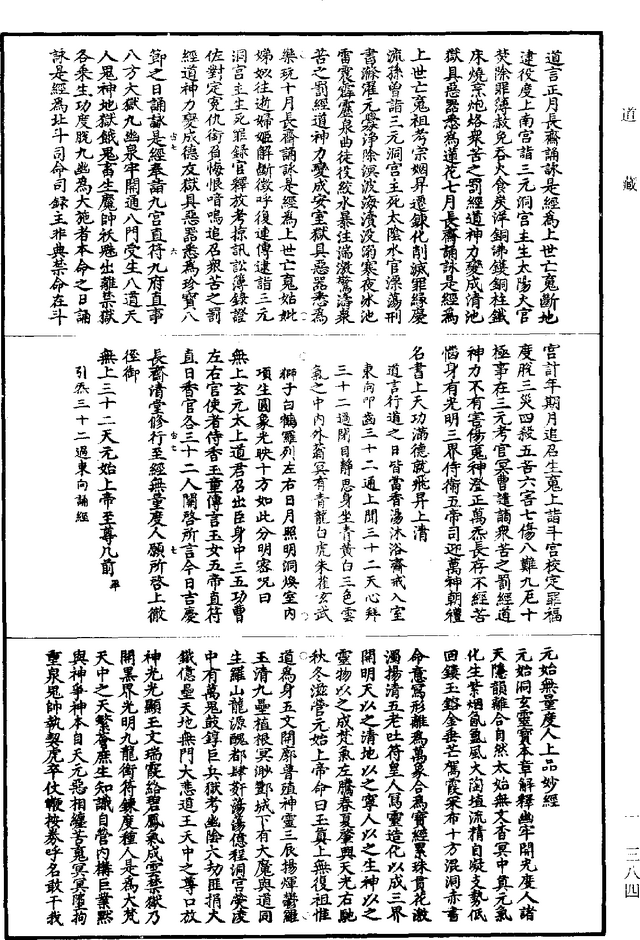 道言正月長齋誦詠是經爲上世亡寃斷地
逮役度上南宮詣三元洞宮主生太陽火官
焚除罪薄赦免吞火食炭洋銅沸鑊銅柱鐵
床燒烹炮烙衆苦之罰經道神力變成清池
獄具惡器悉爲蓮花七月長齋誦詠是經爲
上世亡寃祖考宗姻昇遷鍊化削滅罪緣慶
流孫曾詣三元洞宮主死太陰水官滌蕩刑
書滌濯元釁淨除溟波海漬沒溺寒夜氷池
雷震霹靂泉曲徒役絞水暴注湍激驚濤衆
苦之罰經道神力變成安室獄具惡器悉爲
樂玩十月長齋誦詠是經爲上世亡寃姑妣
娣姒往逝婦姬解斷徵呼復連傳逮詣三元
洞宮主生死罪錄官釋放考掠訊訟簿錄證
佐對定寃仇銜負悔恨喑嗚追召衆苦之罰
經道神力變成德友獄具惡器悉爲珍寶八
節之日誦詠是經奉詣九宮直符九府直事
八方大獄九幽泉牢開通八門受生八道天
人鬼神地獄餓鬼畜生魔師秋魈出離禁獄
各乘生功度脫九幽爲大施者本命之日誦
詠是經爲北斗司命司錄主非典禁命在斗
宮計年期月追召生寃上詣斗宮校定罪福
度脫三災四殺五害六害七傷八難九厄十
極事在三元考官冥曹譴謫衆苦之罰經道
神力不有害傷寃神澄正萬炁長存不經苦
惱身有光明三界侍衛五帝司迎萬神朝禮
名書上天功滿德就飛昇上清
道言行道之日皆當香湯沐浴齋戒入室
東向叩齒三十二通上聞三十二天心拜
三十二過閉目靜思身坐青黃白三色雲
氣之中內外蓊冥有青龍白虎朱雀玄武
獅子白鶴羅列左右日月照明洞煥室內
項生圓象光映十方如此分明密呪曰
無上玄元太上道君召出臣身中三五功曹
左右官使者侍香玉童傳言玉女五帝直符
直日香官各三十二人關啓所言今日吉慶
長齋清堂修行至經無量度人願所啓上徹
徑御
無上三十二天元始上帝至尊几前
引炁三十二過東向誦經
元始無量度人上品妙經
元始洞玄靈寶本章解釋幽牢開光度人諸
天隱韻離合自然太始無文杳冥中真元氣
化生紫烟氤氳風大闔埴流精自凝文勢低
回鏤玉鎔金垂芒駕霞采布十方混洞赤書
命意寫形離爲萬象合爲寶經累珠貫花激
濁揚清五老吐符皇人寫靈造化以成三界
開明天以之清地以之寧人以之生神以之
靈物以之成梵氣左騰春夏肇興天光右馳
秋冬滋營元始上帝命曰玉真上無復祖惟
道爲身五文開廓普殖神靈三辰揚煇鬱羅
玉清九壘植根冥渺酆城下有大魔與道同
生羅山龍源醜都肆姧蕩蕩億程洞宮虛凌
中有萬鬼鼓錞巨兵獄考幽陰六劫匪捐大
鐵億壘天地無門大悲道王天中之尊口放
神光光顯玉文瑞霞絡碧鳳氣成雲禁獄乃
開黑界光明九龍銜符鍊度種人是爲大梵
天中之天繁會庶生知識自營內構巨業黙
與神爭神本自天元惡相纏苦寃冥冥羅拘
重泉鬼帥執契虎卒仗鞭按券呼名敢干我
道藏
一—三八四